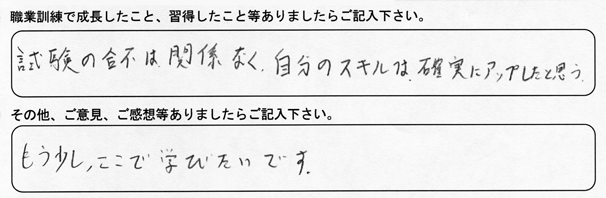 職業訓練で成長したこと、習得したこと等ありましたらご記入下さい。
試験の合否は、関係なく、自分のスキルは、確実にアップしたと思う。
その他、ご意見、ご感想等ありましたらご記入下さい。
もう少し、ここで学びたいです。